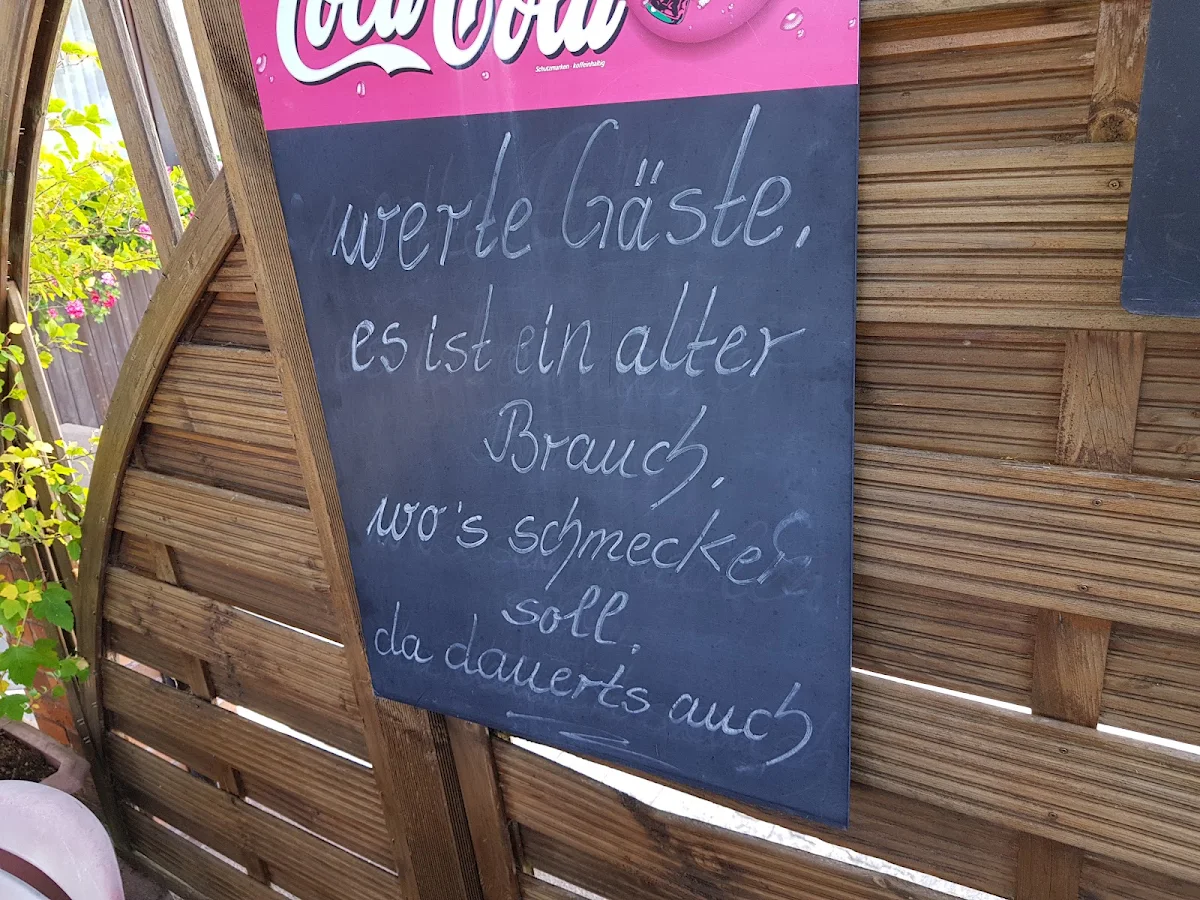 Coca Cola
Schutzmarken · koffeinhaltig
werte Gäste,
es ist ein alter
Brauch,
wo's schmecken
soll,
da dauerts auch